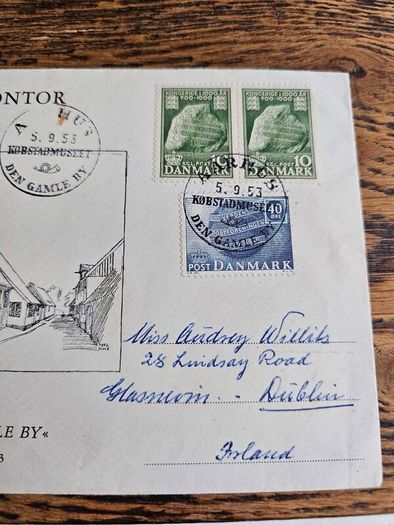 ONTOR
KONGERIGE I 1000 ÅR
900-1000
KGL. POST
10
DANMARK
KONGERIGE I 1000 ÅR
900-1000
KGL. POST
10
DANMARK
AARHUS
5.9.53
KØBSTADMUSEET
DEN GAMLE BY
A HUS
5.9.53
KØBSTADMUSEET
DEN GAMLE BY
40
ØRE
POSTFORENINGEN
POST DANMARK
Miss Audrey Willis
28 Lindsay Road
Glasnevin. - Dublin
Irland
LE BY«
3